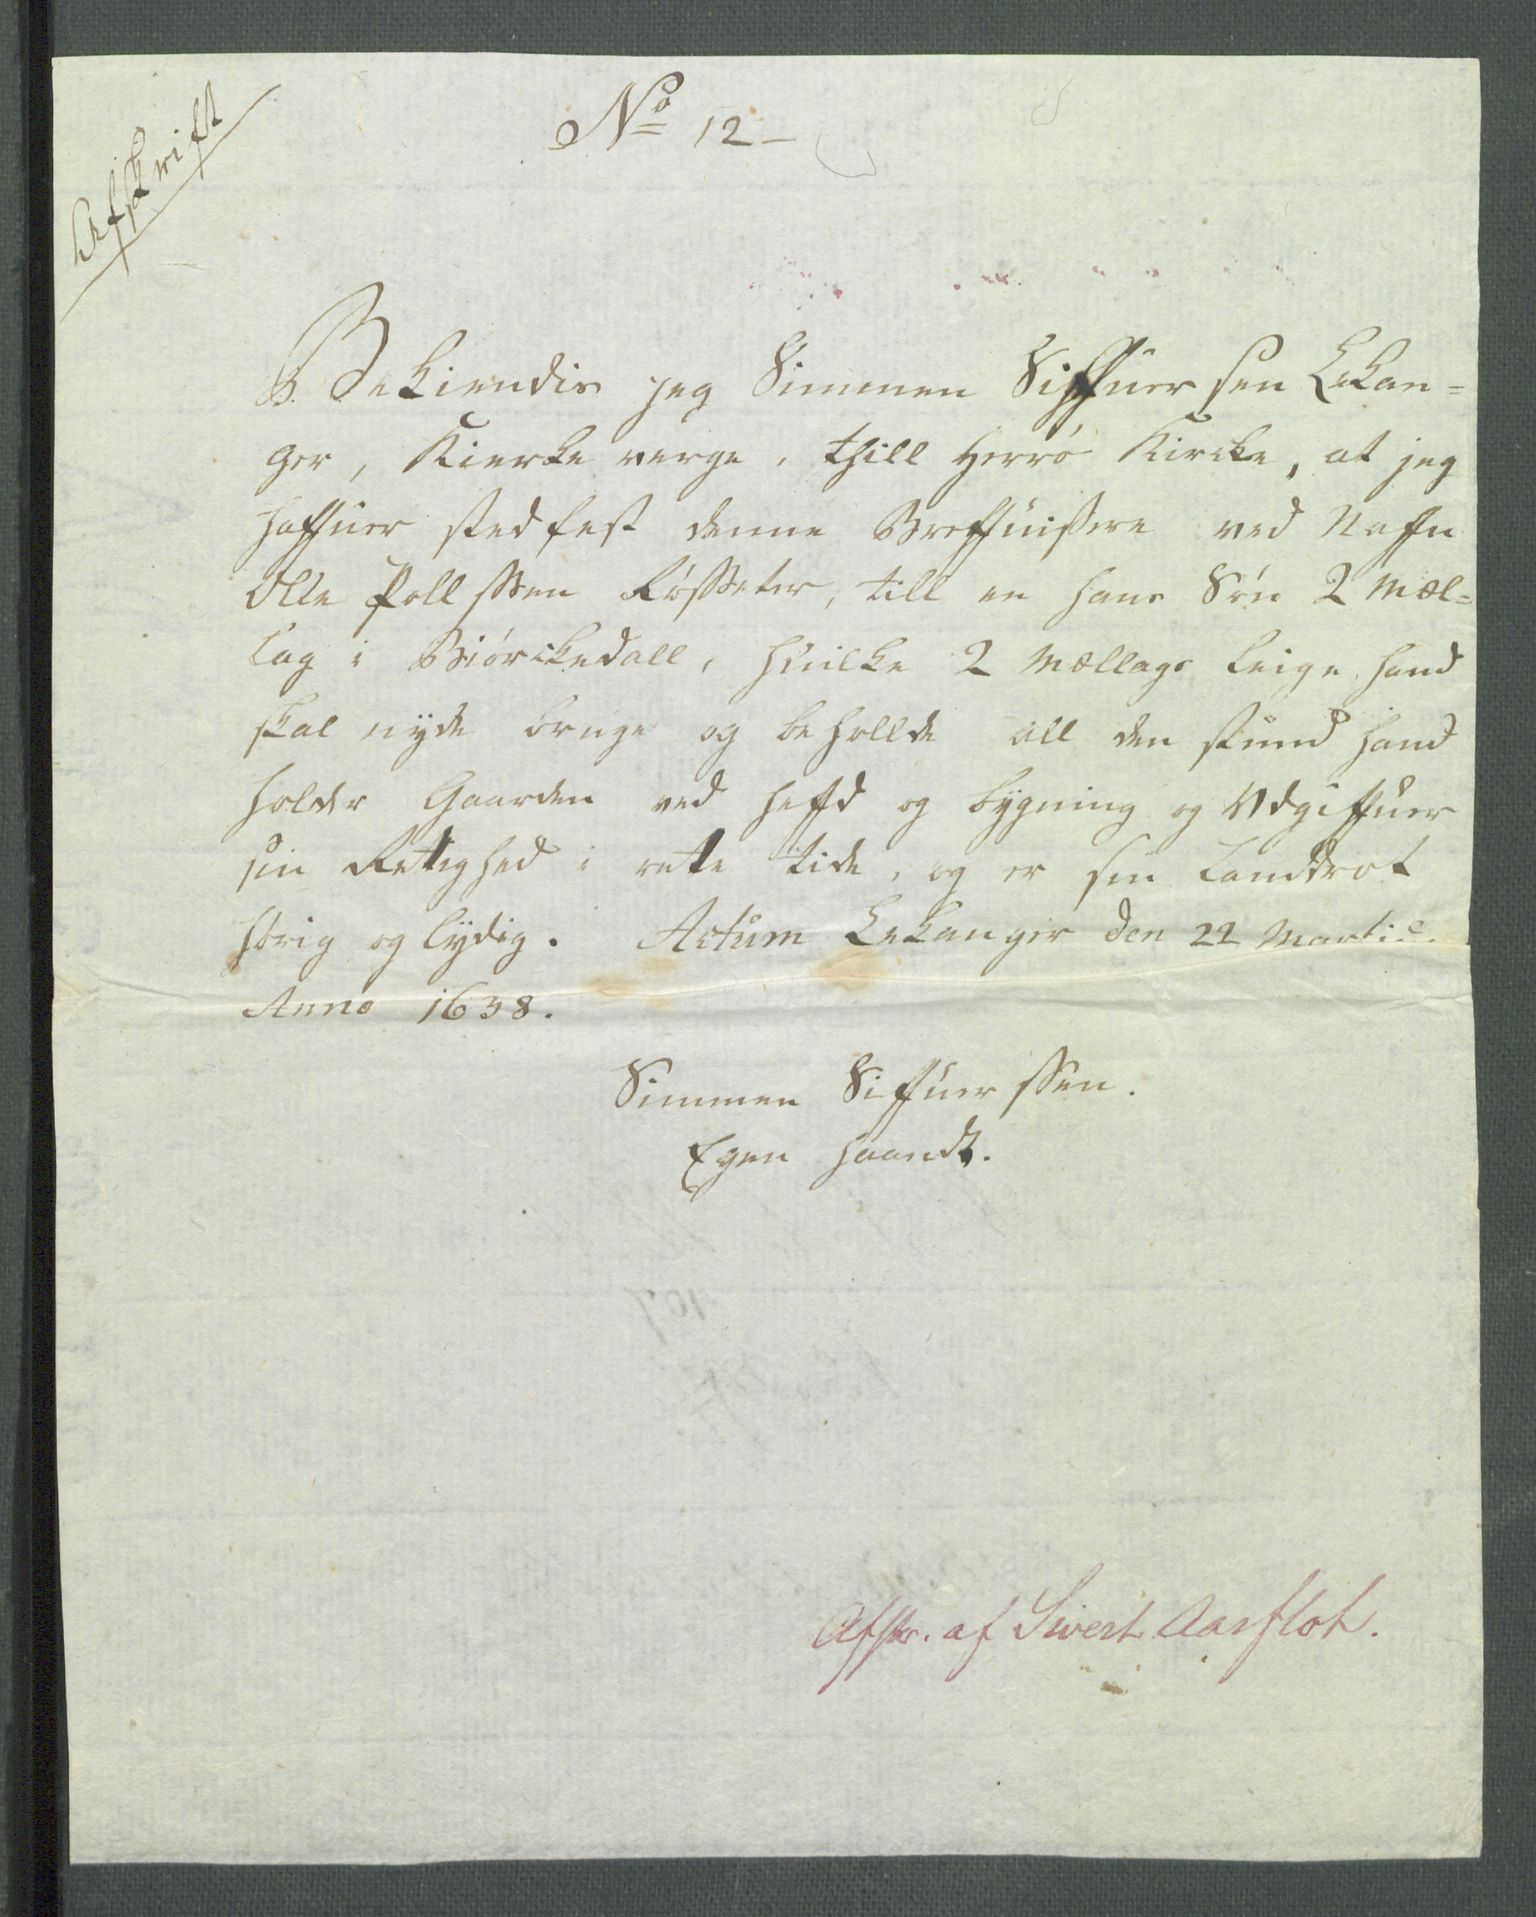 Afskrift
No 12 –
Bekiendis jeg Simmen Siffuer sen Lekan=
ger, Kierke verge, thill Herrö Kircke, at jeg
haffuer stedfest denne Breffuissere ved Nafn
Olle Pollssen Røsseter, till en hans Sön 2 Mæl=
lag i Biörckedall, huilke 2 Mællags Leige hand
skal nyde bruge og behollde all den stund hand
holder Gaarden ved Heffd og bygning og Udgiffuer
sin Retighed i rette tide, og er sin Landdrot
hörig og lydig. Actum Lekanger den 22 Martii.
Anno 1638.
Simmen Siffuer ssen.
Egen haandt.
Afskr. af Sivert Aarflot.